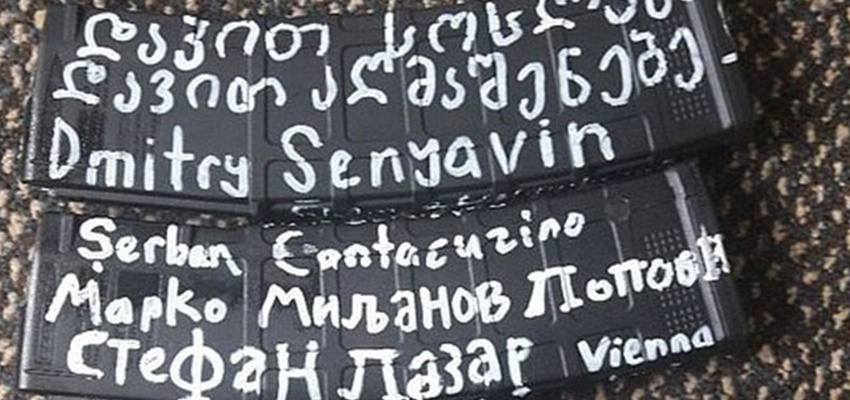 დავით სოსლანი
დავით აღმაშენებე-
Dmitry Senyavin
Şerban Cantacuzino
Марко Миљанов Попови
Стефан Лазар Vienna